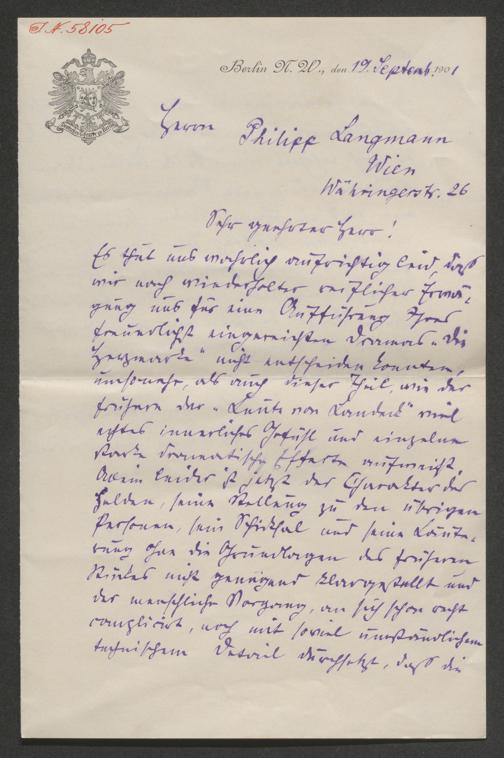 J. N. 58105
Berlin N. W., den 19. Septemb. 1901
Herrn Philipp Langmann
Wien
Währingerstr. 26
Sehr geehrter Herr!
Es thut uns wahrlich aufrichtig leid, daß
wir nach wiederholter reiflicher Erwä-
gung uns für eine Aufführung Ihres
freundlichst eingereichten Dramas „Die
Herzmarke“ nicht entscheiden konnten,
umsomehr, als auch dieser Theil, wie der
frühere der „Leute von Landeck“ viel
echtes innerliches Gefühl und einzelne
starke dramatische Effecte aufweist.
Allein leider ist jetzt der Charakter des
Helden, seine Stellung zu den übrigen
Personen, sein Schicksal und seine Läute-
rung ohne die Grundlagen des früheren
Stückes nicht genügend klargestellt und
der menschliche Vorgang, an sich schon recht
complicirt, noch mit soviel umständlichem
technischem Detail durchsetzt, daß die